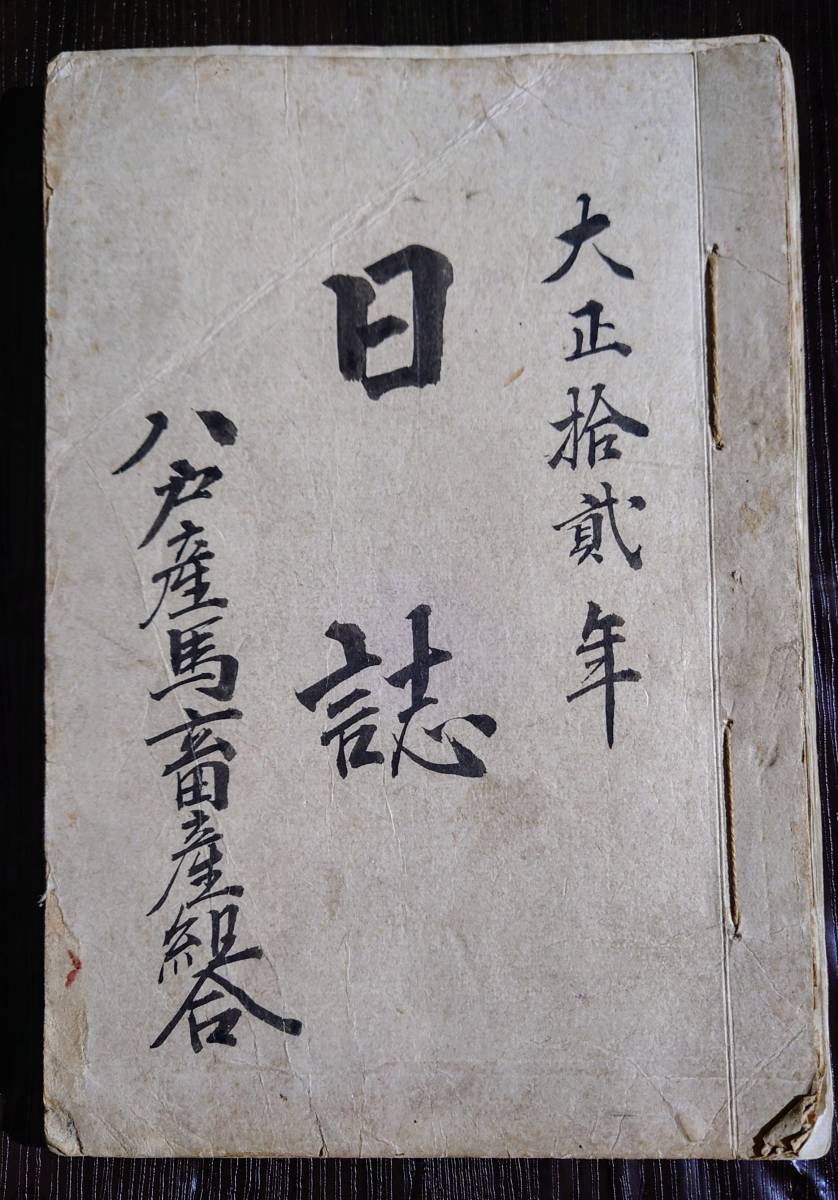 大正拾貳年
日誌
八戸産馬畜産組合